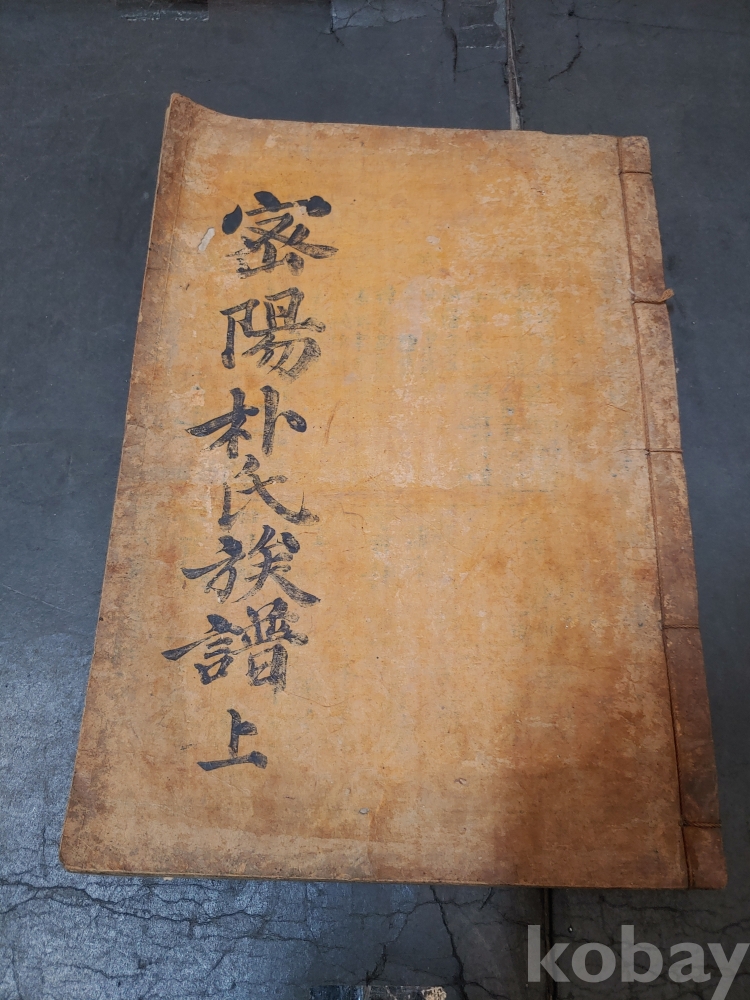 密陽朴氏族譜 上
kobay